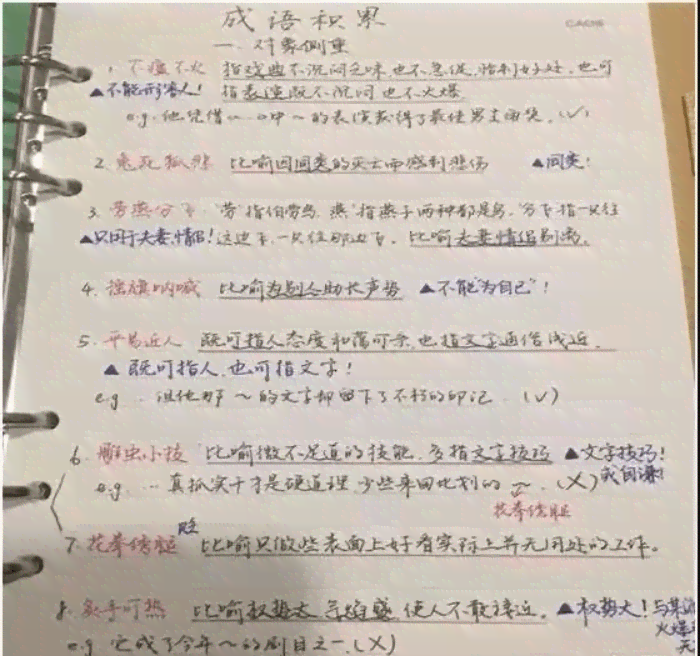 成语积累
一、对象侧重
1. 不瘟不火 指戏曲不沉闷乏味,也不急促,恰到好处,也可
▲不能形容人! 指表演既不沉闷也不火爆
e.g. 他凭借……中~的表演获得了最佳男主角奖.(√)
2. 兔死狐悲 比喻因同类的灭亡而感到悲伤 ▲同类!
3. 劳燕分飞 "劳"指伯劳鸟,燕"指燕子两种都是鸟,"分飞"指一只往
▲只用于夫妻,情侣! 这边飞,一只往那边飞。比喻夫妻情侣别离。
4. 摇旗呐喊 比喻为别人助长声势 ▲不能"为自己"!
5. 平易近人 既可指人态度和蔼可亲,也指文字通俗浅近.
▲既可指人,也可指文字!
e.g. .但他那~的文字却留下了不朽的印记.(√)
6. 雕虫小技 比喻微不足道的技能,多指文字技巧 ▲文字技巧! 或自谦!
e.g. …真抓实干才是硬道理,少些来回比划的~.(×)
花拳绣腿
7. 花拳绣腿 比喻只做些表面上好看实际上并无用处的工作。
8. 炙手可热 比喻权势大,气焰盛,使人不敢接近。▲权势大!与某
火爆
e.g 它成了今年~的剧目之一.(×)